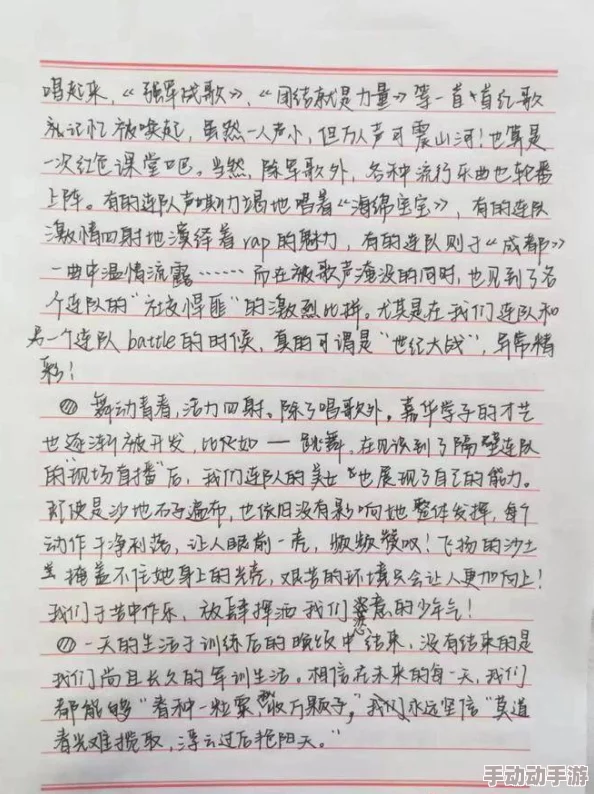 唱起来，《强军战歌》，《团结就是力量》等一首首红歌
就记忆被唤起，虽然一人声小，但万人声可震山河！也算是
一次红色课堂吧。当然，除军歌外，各种流行乐曲也轮番
上阵。有的连队声嘶力竭地唱着《海绵宝宝》，有的连队
激情四射地演绎着rap的魅力，有的连队则于《成都》
一曲中温情流露……而在被歌声淹没的同时，也见到了各
个连队的“社交悍匪”的激烈比拼。尤其是在我们连队和
另一个连队battle的时候，真的可谓是“世纪大战”，异常精
彩！
舞动青春，活力四射。除了唱歌外。嘉华学子的才艺
也逐渐被开发，比如 — 跳舞，在见识到了隔壁连队
的“现场直播”后，我们连队的美女也展现了自己的能力。
即使是沙地石子遍布，也依旧没有影响她整体发挥，每个
动作干净利落，让人眼前一亮，频频赞叹！飞扬的沙土
掩盖不住她身上的光亮，艰苦的环境只会让人更加向上！
我们于苦中作乐，放肆挥洒我们恣意的少年气！
一天的生活于训练后的晚颂中结束，没有结束的是
我们尚且长久的军训生活。相信在未来的每一天，我们
都能够“春种一粒粟，秋收万颗子，”我们永远坚信“莫道
春光难揽取，浮云过后艳阳天。”
手动动手游